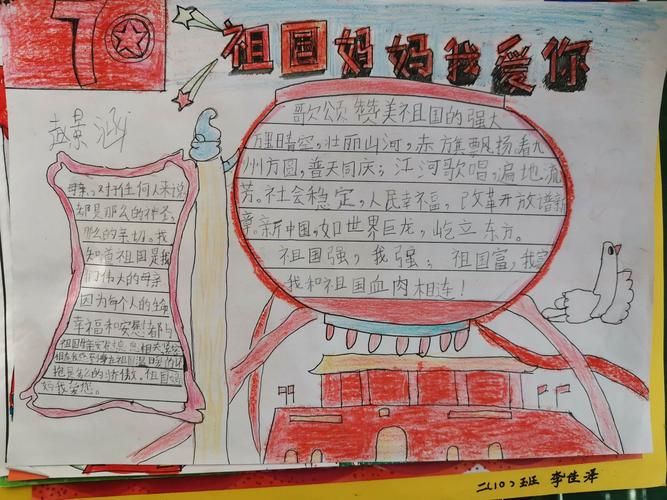 70
祖国妈妈我爱你
赵景涵
歌颂赞美祖国的强大
万里晴空，壮丽山河，赤旗飘扬着九
州方圆，普天同庆；江河歌唱，遍地流
芳。社会稳定，人民幸福，改革开放谱新
章。新中国，如世界巨龙，屹立东方。
祖国强，我强；祖国富，我富
我和祖国血肉相连！
母亲，对于任何人来说
都是那么的神圣，
那么的亲切。我
知道祖国是我
们伟大的母亲
因为每个人的生命
幸福和安想都与
祖国母亲息息相关
抱是么的骄傲。祖国妈
妈我爱您。
二(10)班 李佳泽